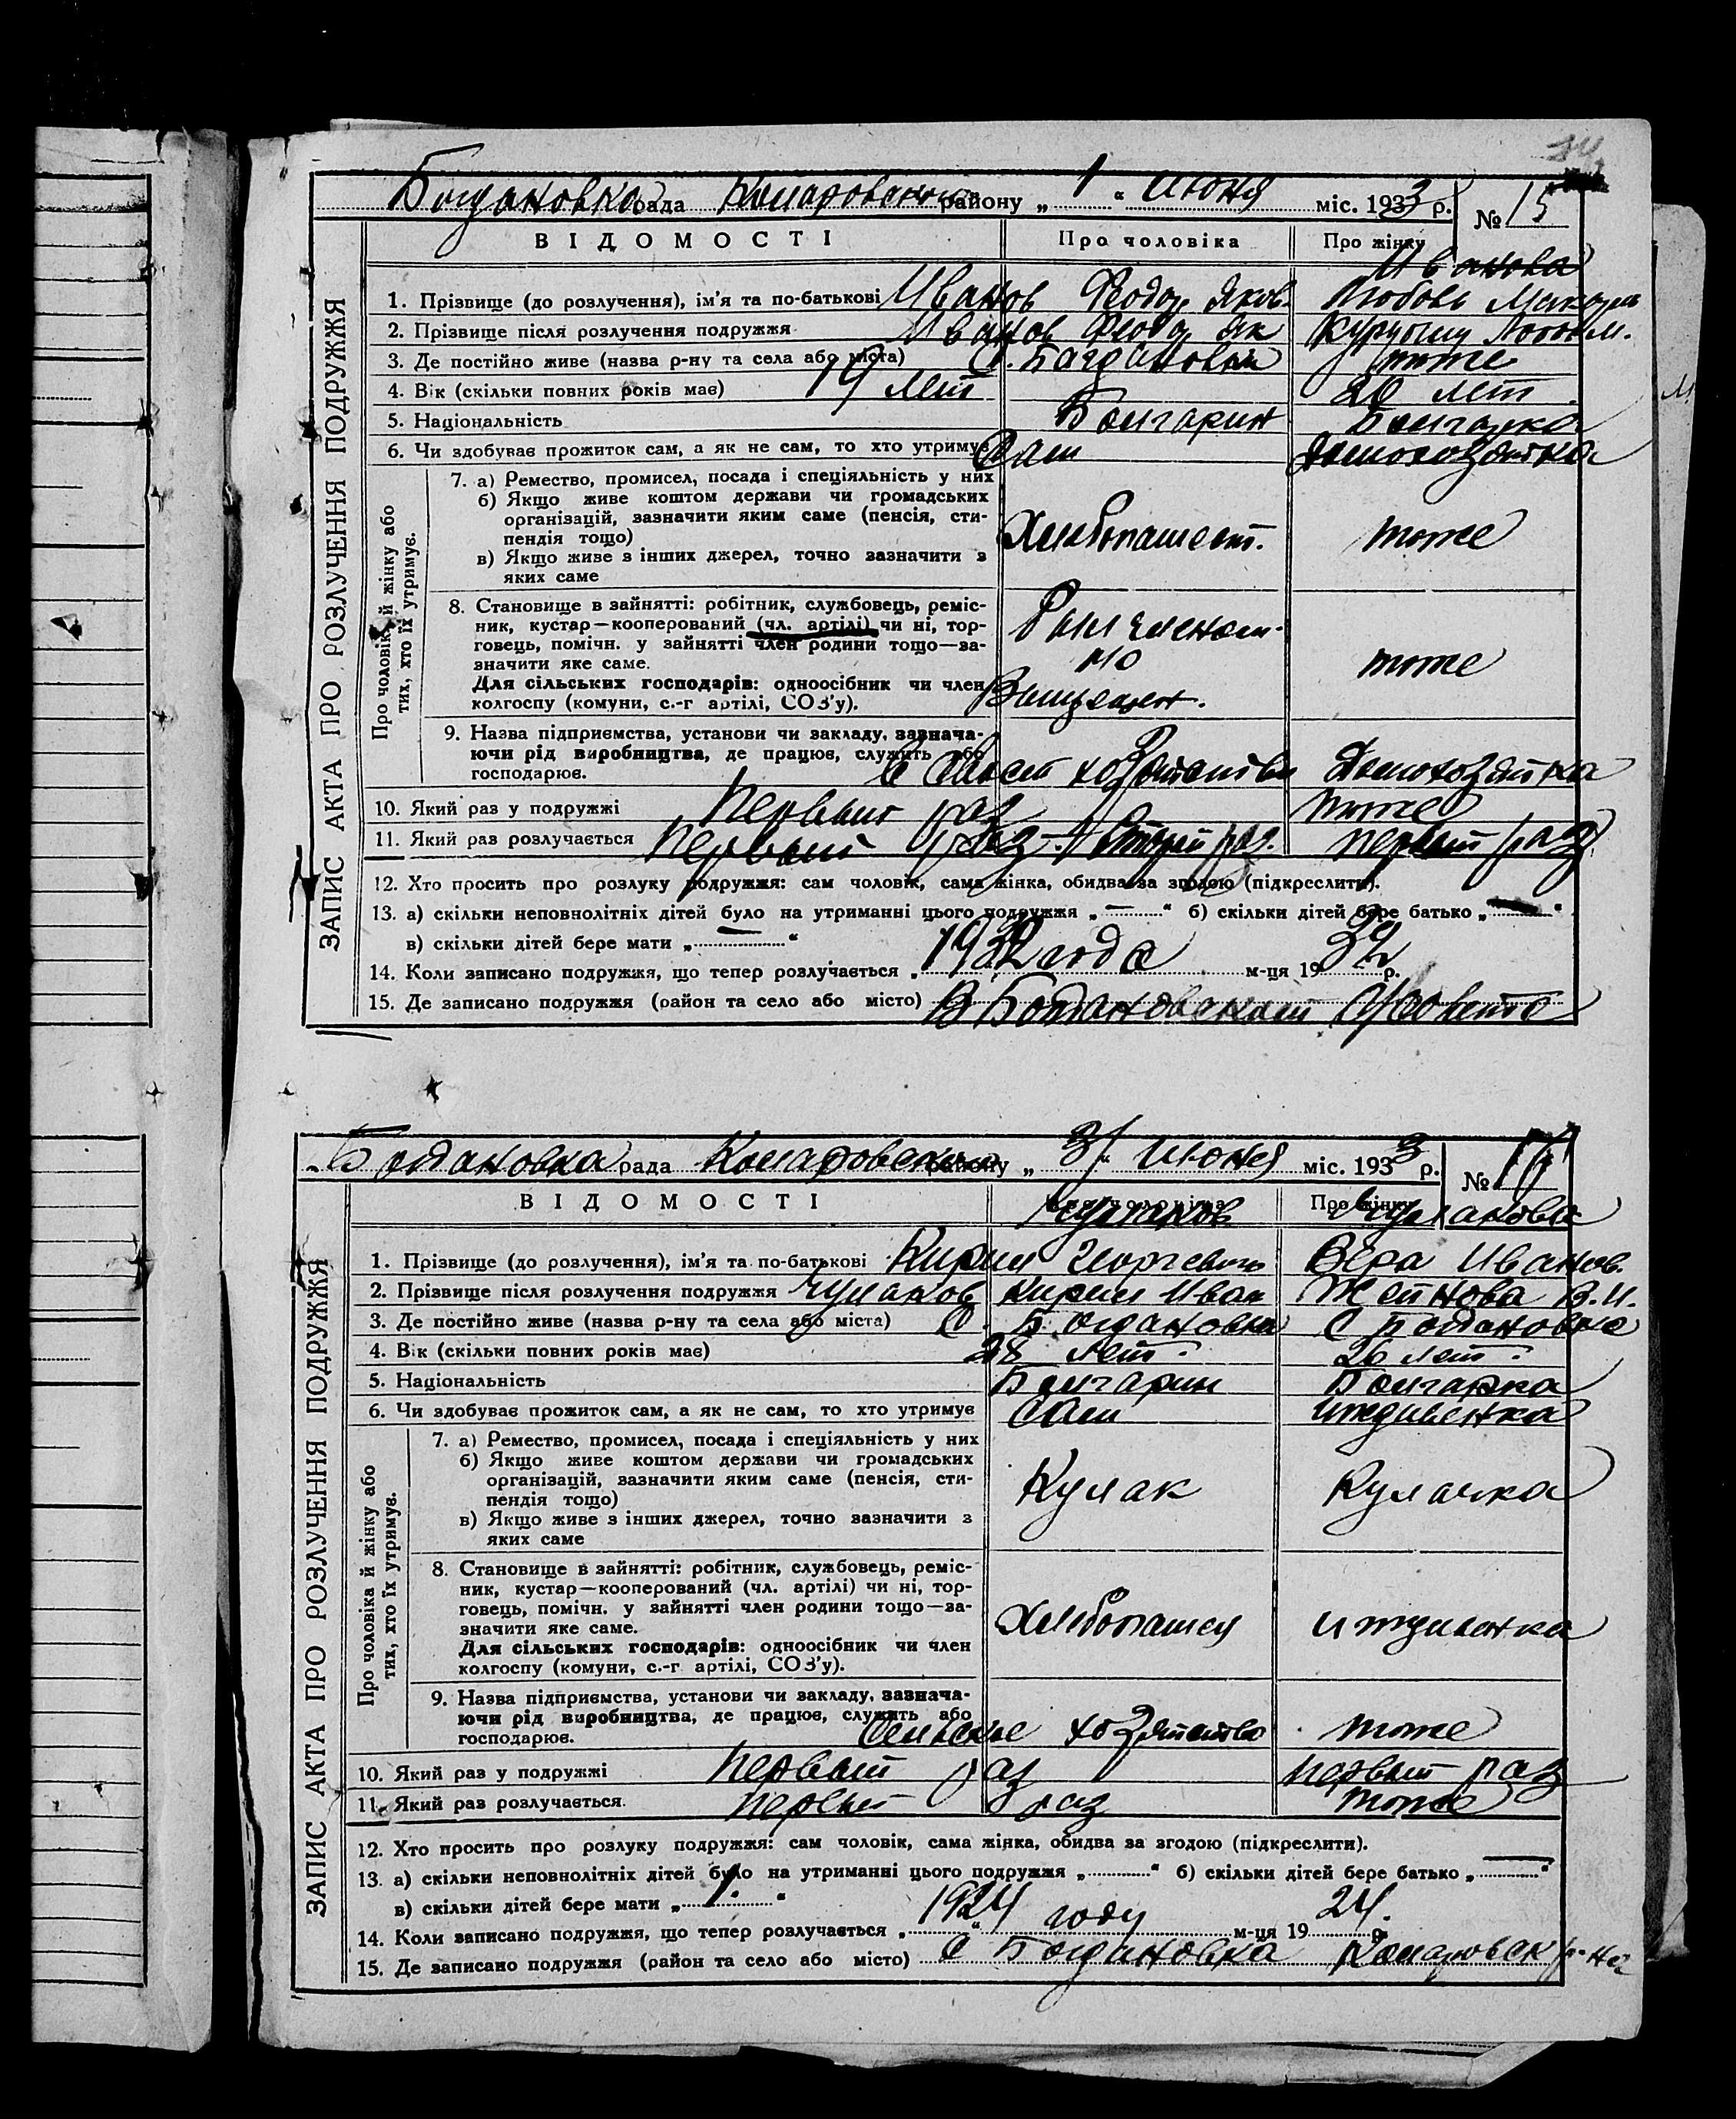 Богдановка рада Коларовского району „ 1 “ Июня міс. 1933 р. № 15
ВІДОМОСТІ Про чоловіка Про жінку
Иванова
1. Прізвище (до розлучення), ім'я та по-батькові Иванов Феодор Яков. Любовь
2. Прізвище після розлучення подружжя Иванов Феодор Як
3. Де постійно живе (назва р-ну та села або міста) С. Багдановка тоже
4. Вік (скільки повних років має) 19 лет 20 лет
5. Національність Болгарин Болгарка
6. Чи здобуває прожиток сам, а як не сам, то хто утримує Сам Домохозяйка
ЗАПИС АКТА ПРО РОЗЛУЧЕННЯ ПОДРУЖЖЯ
Про чоловіка й жінку або
тих, хто їх утримує.
7. а) Ремество, промисел, посада і спеціяльність у них
б) Якщо живе коштом держави чи громадських
організацій, зазначити яким саме (пенсія, сти-
пендія тощо) Хлебопашест. тоже
в) Якщо живе з інших джерел, точно зазначити з
яких саме
8. Становище в зайнятті: робітник, службовець, реміс-
ник, кустар—кооперований (чл. артілі) чи ні, тор-
говець, помічн. у зайнятті член родини тощо—за-
значити яке саме. тоже
Для сільських господарів: одноосібник чи член
колгоспу (комуни, с.-г артілі, СОЗ'у).
9. Назва підприємства, установи чи закладу, зазнача-
ючи рід виробництва, де працює, служить або
господарює. Домохозяйка
10. Який раз у подружжі Первый раз тоже
11. Який раз розлучається Первый раз. Второй раз. первый раз
12. Хто просить про розлуку подружжя: сам чоловік, сама жінка, обидва за згодою (підкреслити).
13. а) скільки неповнолітніх дітей було на утриманні цього подружжя „ — “ б) скільки дітей бере батько „ — “
в) скільки дітей бере мати „ — “
14. Коли записано подружжя, що тепер розлучається „ 1932 года м-ця 19 32 р.
15. Де записано подружжя (район та село або місто) В Богдановском с/совете
Богдановка рада Коларовского району „ 3 “ Июня міс. 1933 р. №
ВІДОМОСТІ Про жінку
Чулаков Чулакова
1. Прізвище (до розлучення), ім'я та по-батькові Кирил Георгевич Вера Иванов.
2. Прізвище після розлучення подружжя Чулаков Кирил Иван Жейнова В.И.
3. Де постійно живе (назва р-ну та села або міста) С. Богдановка С Богдановка
4. Вік (скільки повних років має) 28 лет. 26 лет.
5. Національність Болгарин Болгарка
6. Чи здобуває прожиток сам, а як не сам, то хто утримує Сам иждивенка
ЗАПИС АКТА ПРО РОЗЛУЧЕННЯ ПОДРУЖЖЯ
Про чоловіка й жінку або
тих, хто їх утримує.
7. а) Ремество, промисел, посада і спеціяльність у них
б) Якщо живе коштом держави чи громадських
організацій, зазначити яким саме (пенсія, сти-
пендія тощо) Кулак Кулачка
в) Якщо живе з інших джерел, точно зазначити з
яких саме
8. Становище в зайнятті: робітник, службовець, реміс-
ник, кустар—кооперований (чл. артілі) чи ні, тор-
говець, помічн. у зайнятті член родини тощо—за-
значити яке саме. Хлебопашец иждивенка
Для сільських господарів: одноосібник чи член
колгоспу (комуни, с.-г артілі, СОЗ'у).
9. Назва підприємства, установи чи закладу, зазнача-
ючи рід виробництва, де працює, служить або
господарює. Сельское хозяйство тоже
10. Який раз у подружжі первый раз первый раз
11. Який раз розлучається. первый раз тоже
12. Хто просить про розлуку подружжя: сам чоловік, сама жінка, обидва за згодою (підкреслити).
13. а) скільки неповнолітніх дітей було на утриманні цього подружжя „ “ б) скільки дітей бере батько „ — “
в) скільки дітей бере мати „ 1. “
14. Коли записано подружжя, що тепер розлучається „ 1924 году м-ця 19 24. р.
15. Де записано подружжя (район та село або місто) С Богдановка Коларовск р-на